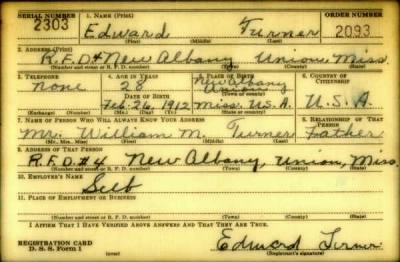 SERIAL NUMBER 1. NAME (Print) ORDER NUMBER
2303 Edward Turner 2093
(First) (Middle) (Last)
2. ADDRESS (Print)
R.F.D.4 New Albany Union Miss.
(Number and street or R. F. D. number) (Town) (County) (State)
3. TELEPHONE 4. AGE IN YEARS 5. PLACE OF BIRTH 6. COUNTRY OF CITIZENSHIP
None 28 New Albany
Union
DATE OF BIRTH (Town or county)
Feb. 26, 1912 Miss. U.S.A. U.S.A.
(Exchange) (Number) (Mo.) (Day) (Yr.) (State or country)
7. NAME OF PERSON WHO WILL ALWAYS KNOW YOUR ADDRESS 8. RELATIONSHIP OF THAT PERSON
Mr. William M. Turner Father
(Mr., Mrs., Miss) (First) (Middle) (Last)
9. ADDRESS OF THAT PERSON
R.F.D.#4 New Albany, Union, Miss.
(Number and street or R. F. D. number) (Town) (County) (State)
10. EMPLOYER'S NAME
Self
11. PLACE OF EMPLOYMENT OR BUSINESS
(Number and street or R. F. D. number) (Town) (County) (State)
I AFFIRM THAT I HAVE VERIFIED ABOVE ANSWERS AND THAT THEY ARE TRUE.
REGISTRATION CARD
D. S. S. Form 1 Edward Turner
(over) (Registrant's signature)